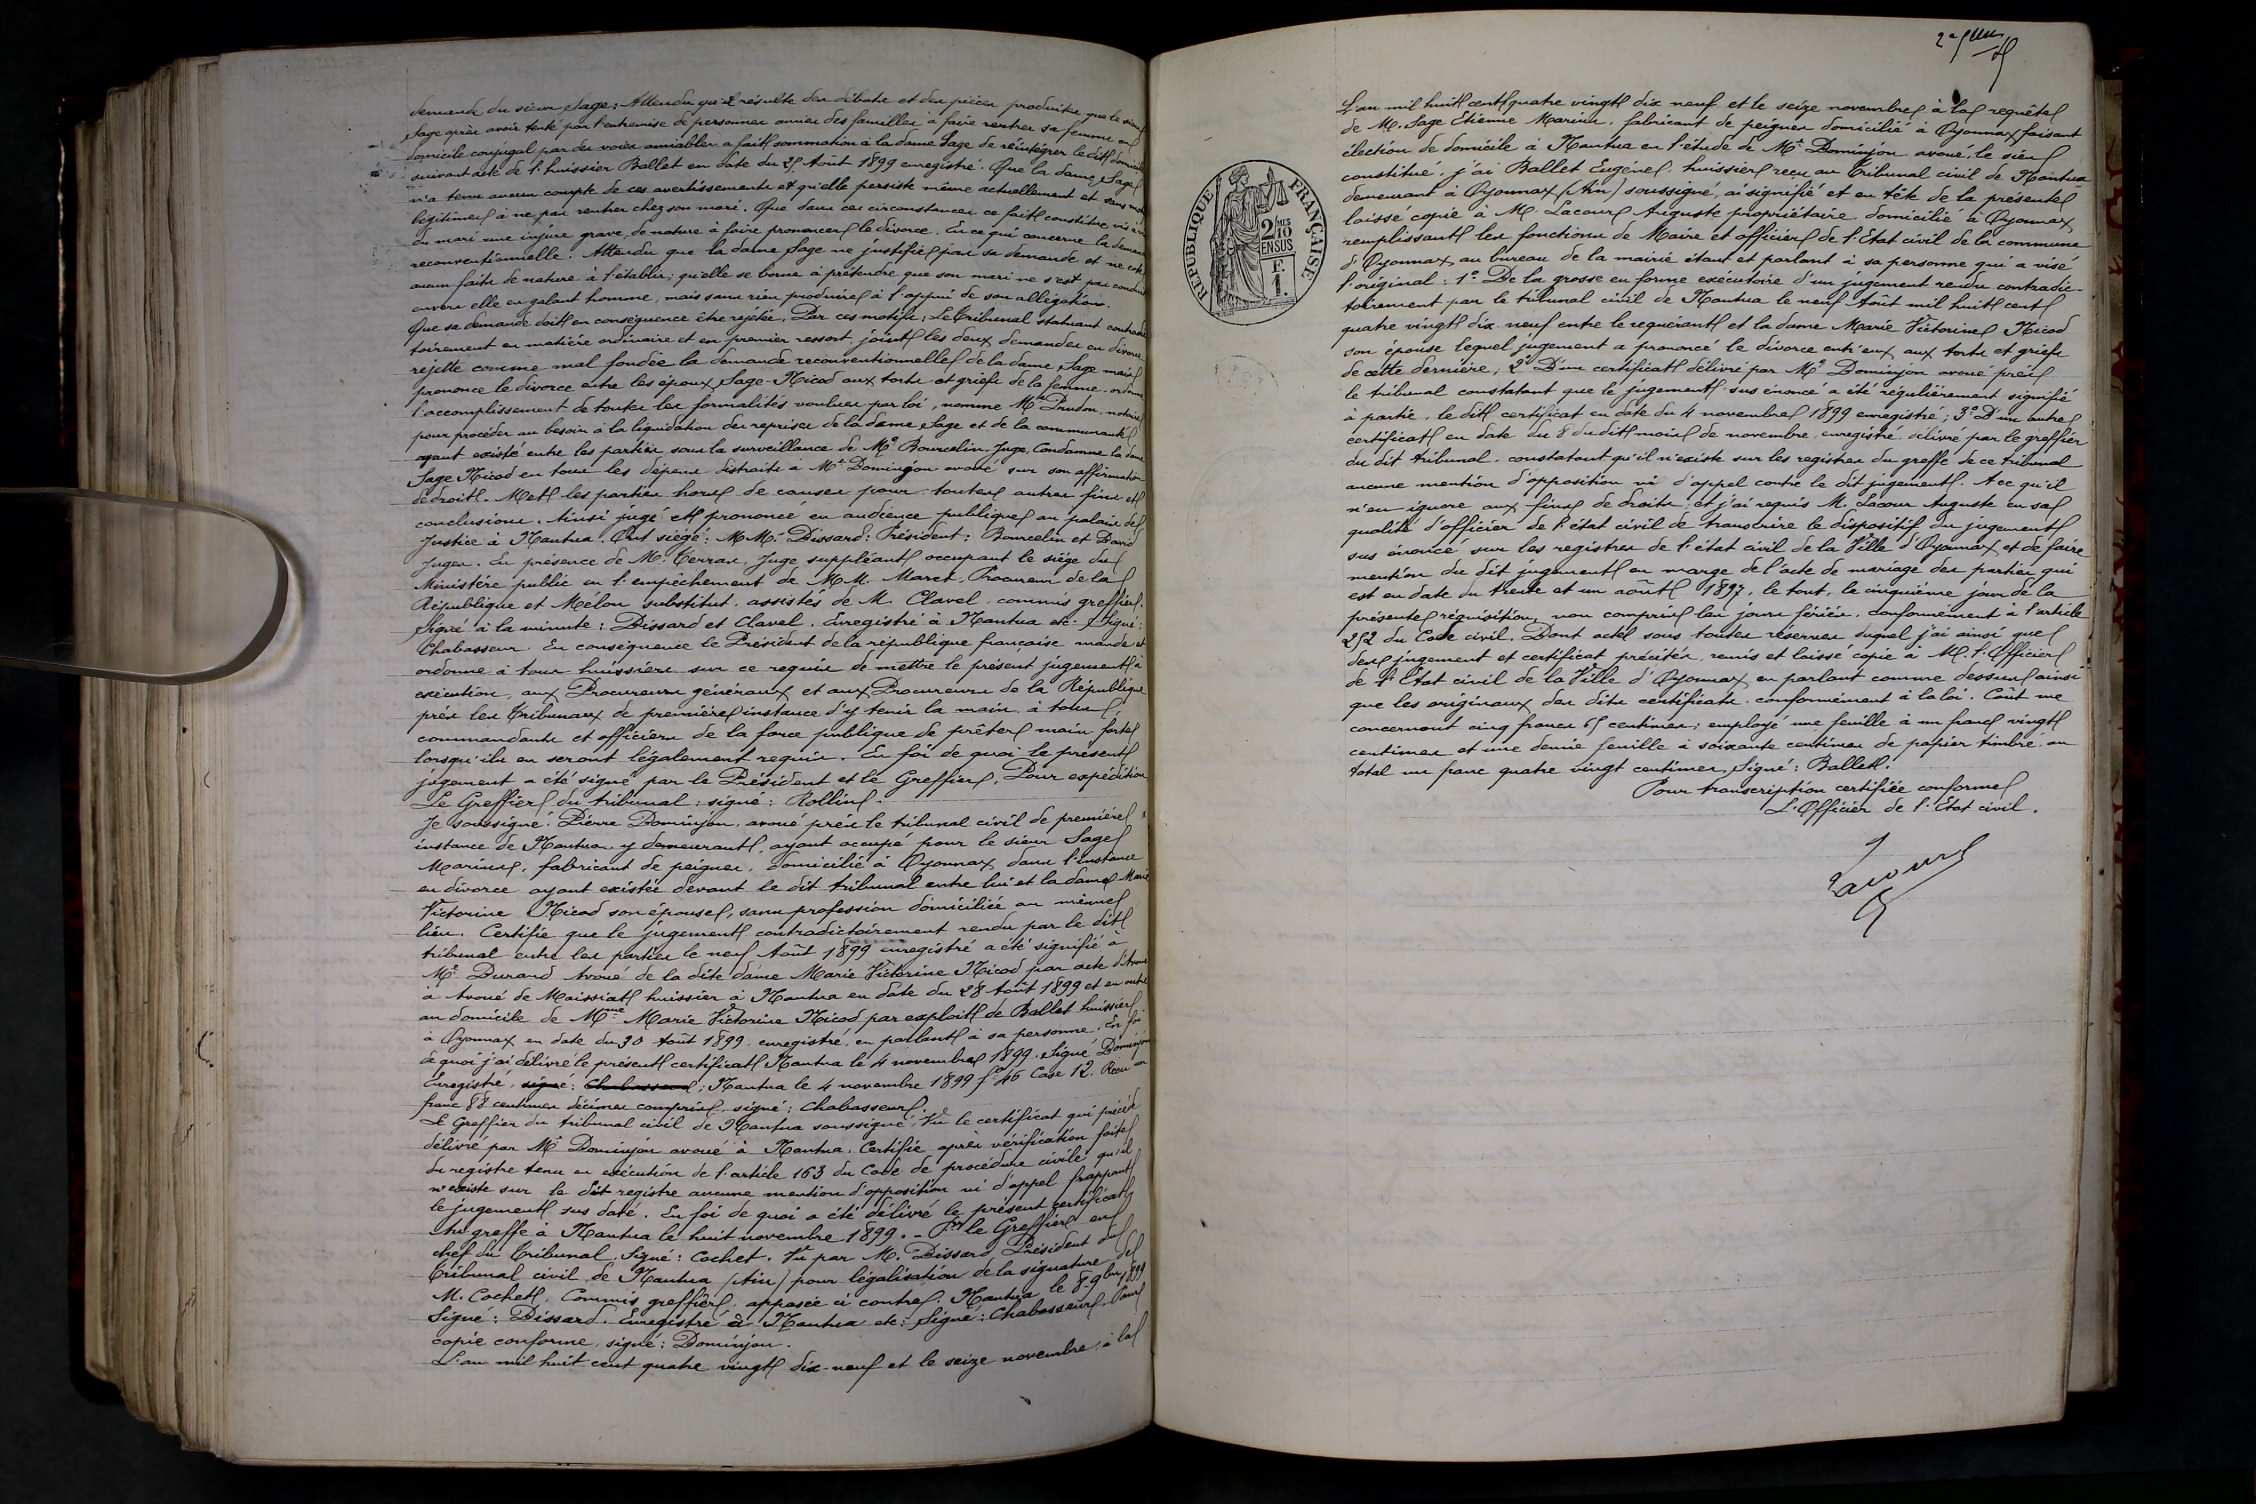 demande du sieur Sage; Attendu qu'il résulte des débats et des pièces produites que le sieur
Sage après avoir tenté par l'entremise de personnes amies des familles à faire rentrer sa femme au
domicile conjugal par des voies amiables a fait sommation à la dame Sage de réintégrer le dit domicile
suivant acte de l'huissier Ballet en date du 25 Août 1899 enregistré. Que la dame Sage
n'a tenu aucun compte de ces avertissements et qu'elle persiste même actuellement et sans motifs
légitimes à ne pas rentrer chez son mari. Que dans ces circonstances ce fait constitue vis à vis
du mari une injure grave de nature à faire prononcer le divorce. En ce qui concerne la demande
reconventionnelle: Attendu que la dame Sage ne justifie pas sa demande et ne cote
aucun faits de nature à l'établir; qu'elle se borne à prétendre que son mari ne s'est pas conduit
envers elle en galant homme, mais sans rien produire à l'appui de son allégation.
Que sa demande doit en conséquence être rejetée. Par ces motifs: Le Tribunal statuant contradic
toirement en matière ordinaire et en premier ressort, joint les deux demandes en divorce
rejette comme mal fondée la demande reconventionnelle de la dame Sage mais
prononce le divorce entre les époux Sage-Nicod aux torts et griefs de la femme. ordonne
l'accomplissement de toutes les formalités voulues par loi, nomme Me Prudon, notaire
pour procéder au besoin à la liquidation des reprises de la dame Sage et de la communauté
ayant existé entre les parties sous la surveillance de Mr Bourcelin Juge, Condamne la dame
Sage Nicod en tous les dépens distraits à Me Dominjon avoué sur son affirmation
de droit. Met les parties hors de causes pour toutes autres fins et
conclusions. Ainsi jugé et prononcé en audience publique au palais de
Justice à Nantua. Ont siégé: MM. Dissard: Président: Bourcelin et David
Juges. En présence de M. Terras, Juge suppléant occupant le siége du
Ministère public en l'empêchement de MM. Maret, Procureur de la
République et Mélou substitut, assistés de M. Clavel commis greffier.
Signé à la minute: Dissard et Clavel. Enregistré à Nantua etc. Signé:
Chabasseur. En conséquence le Président de la république française mande et
ordonne à tous huissiers sur ce requis de mettre le présent jugement à
exécution, aux Procureurs généraux et aux Procureurs de la République
près les Tribunaux de première instance d'y tenir la main, à tous
commandants et officiers de la force publique de prêter main forte
lorsqu'ils en seront légalement requis. En foi de quoi le présent
jugement a été signé par le Président et le Greffier. Pour expédition
Le Greffier du tribunal: signé: Rollin.
Je soussigné Pierre Dominjon, avoué près le tribunal civil de première
instance de Nantua y demeurant, ayant occupé pour le sieur Sage
Marius, fabricant de peignes, domicilié à Oyonnax, dans l'instance
en divorce ayant existée devant le dit tribunal entre lui et la dame Marie
Victorine Nicod son épouse, sans profession domiciliée au même
lieu. Certifie que le jugement contradictoirement rendu par le dit
tribunal entre les parties le neuf Août 1899 enregistré a été signifié à
Me Durand Avoué de la dite dame Marie Victorine Nicod par acte d'Avoué
à Avoué de Maissiat huissier à Nantua en date du 28 Août 1899 et en outre
au domicile de Mme Marie Victorine Nicod par exploit de Ballet huissier
à Oyonnax en date du 30 Août 1899 enregistré, en parlant à sa personne. En foi
de quoi j'ai délivré le présent certificat Nantua le 4 novembre 1899. Signé Dominjon
Enregistré, signé: Chabasseur; Nantua le 4 novembre 1899 f° 46 Case 12. Reçu un
franc 88 centimes décimes compris, signé: Chabasseur.
Le Greffier du tribunal civil de Nantua soussigné, Vu le certificat qui précède
délivré par Me Dominjon avoué à Nantua. Certifie après vérification faite
du registre tenu en exécution de l'article 163 du Code de procédure civile qu'il
n'existe sur le dit registre aucune mention d'opposition ni d'appel frappant
le jugement sus daté. En foi de quoi a été délivré le présent certificat
Au greffe à Nantua le huit novembre 1899. - Pr le Greffier en
chef du Tribunal, Signé: Cochet. Vu par M. Dissard Président du
Tribunal civil de Nantua (Ain) pour légalisation de la signature de
M. Cochet, Commis greffier, apposée ci contre. Nantua le 8 9bre 1899
Signé: Dissard. Enregistré à Nantua etc: Signé: Chabasseur. Pour
copie conforme, signé: Dominjon.
L'an mil huit cent quatre vingt dix-neuf et le seize novembre, à la
L'an mil huit cent quatre vingt dix neuf et le seize novembre à la requête
de M. Sage Etienne Marius, fabricant de peignes domicilié à Oyonnax faisant
élection de domicile à Nantua en l'étude de Me Dominjon avoué, le sien
constitué, j'ai Ballet Eugène, huissier reçu au Tribunal civil de Nantua
demeurant à Oyonnax (Ain) soussigné, ai signifié et en tête de la présente
laissé copie à M. Lacour Auguste propriétaire domicilié à Oyonnax
remplissant les fonctions de Maire et officier de l'Etat civil de la commune
d'Oyonnax au bureau de la mairie étant et parlant à sa personne qui a visé
l'original: 1° De la grosse en forme exécutoire d'un jugement rendu contradic-
toirement par le tribunal civil de Nantua le neuf Août mil huit cent
quatre vingt dix-neuf entre le requérant et la dame Marie Victorine Nicod
son épouse lequel jugement a prononcé le divorce entr'eux aux torts et griefs
de cette dernière; 2° D'un certificat délivré par Me Dominjon avoué près
le tribunal constatant que le jugement sus énoncé a été régulièrement signifié
à partie, le dit certificat en date du 4 novembre 1899 enregistré; 3° D'un autre
certificat en date du 8 du dit mois de novembre, enregistré, délivré par le greffier
du dit tribunal constatant qu'il n'existe sur les registres du greffe de ce tribunal
aucune mention d'opposition ni d'appel contre le dit jugement. A ce qu'il
n'en ignore aux fins de droits; et j'ai requis M. Lacour Auguste en sa
qualité d'officier de l'état civil de transcrire le dispositif du jugement
sus énoncé sur les registres de l'état civil de la Ville d'Oyonnax et de faire
mention du dit jugement en marge de l'acte de mariage des parties qui
est en date du trente et un août 1897, le tout, le cinquième jour de la
présente réquisition, non compris les jours fériés, conformément à l'article
252 du Code civil. Dont acte sous toutes réserves duquel j'ai ainsi que
des jugement et certificat précités, remis et laissé copie à M. l'Officier
de l'Etat civil de la Ville d'Oyonnax en parlant comme dessus ainsi
que les originaux des dits certificats conformément à la loi. Coût me
concernant cinq francs 65 centimes; employé une feuille à un franc vingt
centimes et une demie feuille à soixante centimes de papier timbré, au
total un franc quatre vingt centimes, Signé: Ballet.
Pour transcription certifiée conforme
L'Officier de l'Etat civil.
Lacour
RÉPUBLIQUE FRANÇAISE
2/10
EN SUS
F.
1.